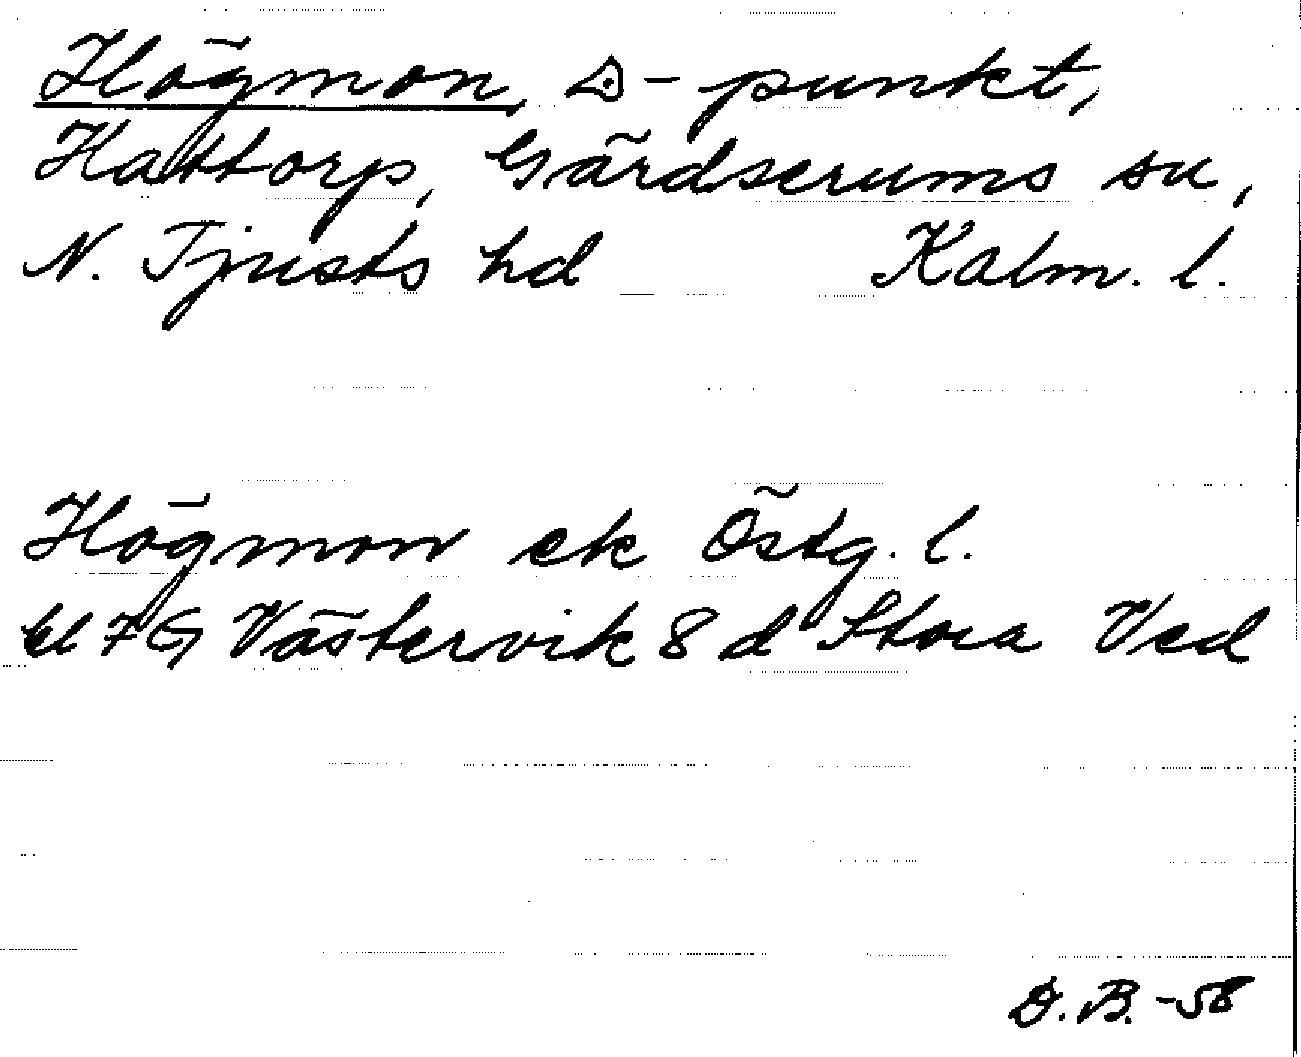 Högmon, △-punkt,
Hattorp, Gärdserums sn,
N. Tjusts hd Kalm. l.
Högmon ek Östg. l.
bl 7 G Västervik 8 d Stora Ved
D. B. -58